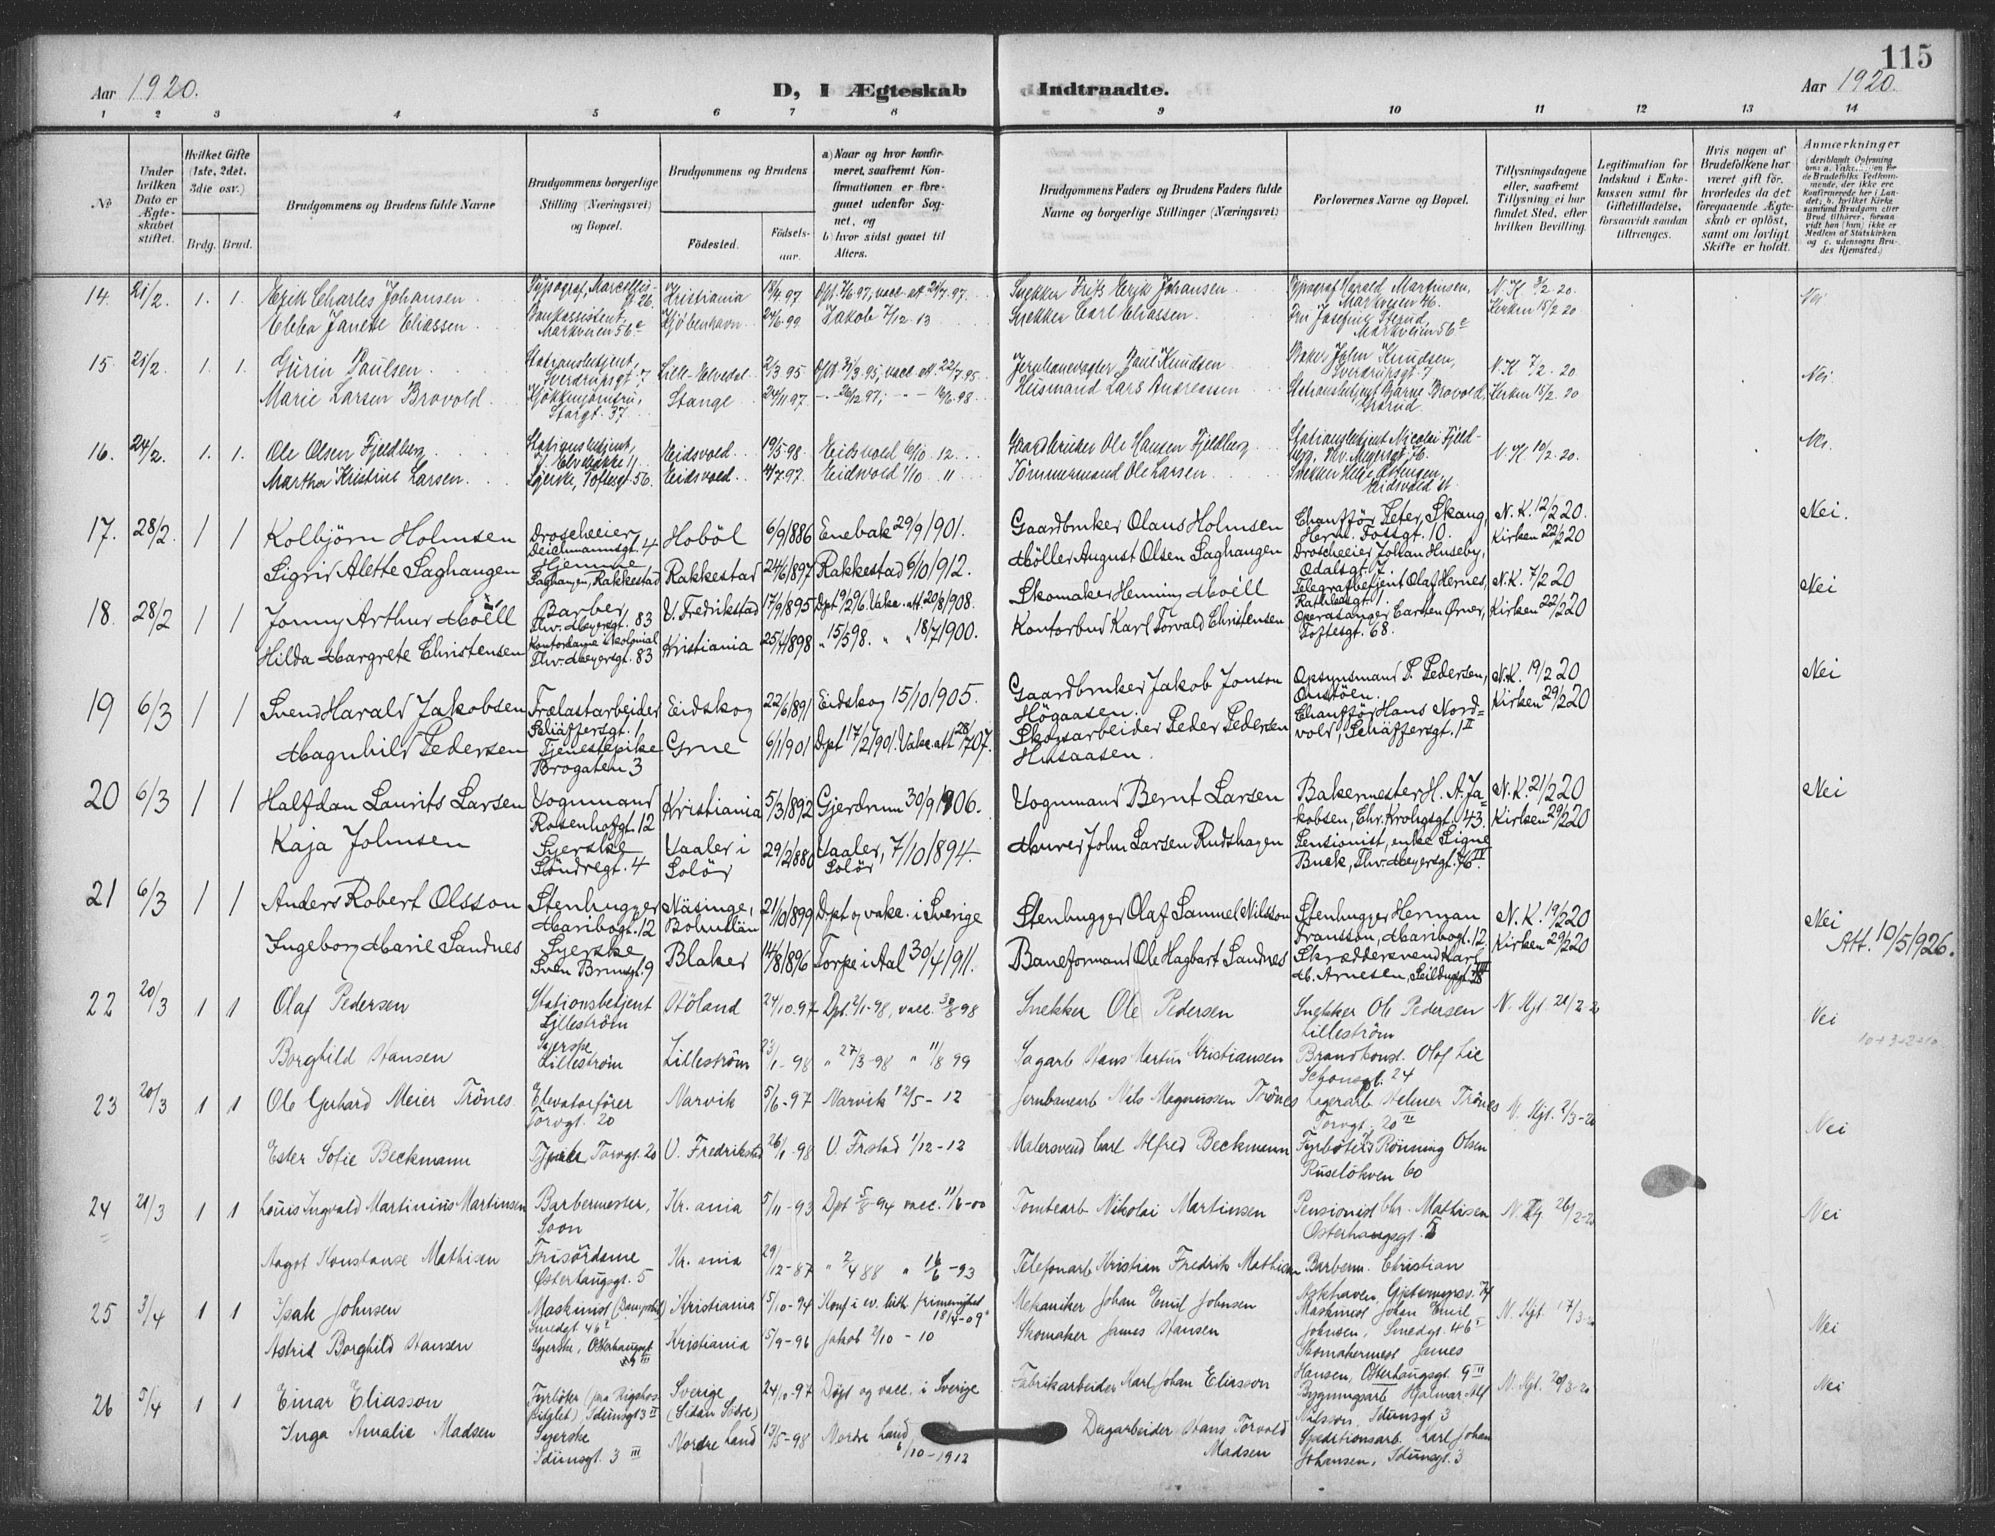 115
Aar 1920.
D, I Ægteskab Indtraadte.
Aar 1920.
1 2 3 4 5 6 7 8 9 10 11 12 13 14
№
Under hvilken Dato er Ægteskabet stiftet.
Hvilket Gifte (1ste, 2det, 3die osv.)
Brdg. Brud.
Brudgommens og Brudens fulde Navne
Brudgommens borgerlige Stilling (Næringsvei) og Bopæl.
Brudgommens og Brudens
Fødested.
Fødselsaar.
a) Naar og hvor konfirmeret, saafremt Konfirmationen er foregaaet udenfor Sognet, og
b) hvor sidst gaaet til Alters.
Brudgommens Faders og Brudens Faders fulde Navne og borgerlige Stillinger (Næringsvei)
Forlovernes Navne og Bopæl.
Tillysningsdagene eller, saafremt Tillysning ei har fundet Sted, efter hvilken Bevilling.
Legitimation for Indskud i Enkekassen samt for Giftetilladelse, forsaavidt saadan tiltrænges.
Hvis nogen af Brudefolkene har været gift før, hvorledes da det foregaaende Ægteskab er opløst, samt om lovligt Skifte er holdt.
Anmærkninger
14. 21/2. 1. 1. Erik Charles Johansen Typograf, Kristiania Snekker Frits Erik Johansen Typograf Harald Martinsen, Markveien 46. N.K. 8/2 20. Nei
Ebba Janette Eliassen Markveien 56c Kjöbenhavn 24/6 99 Jakob 7/12 13 Snekker Carl Eliassen Markveien 56c Kirken 15/2 20
15. 21/2. 1. 1. Gurin Paulsen Stationsbetjent, Sverdrupsgt. 7 Lille-Elvedal 2/3 95 Paul Knudsen John Knudsen, Sverdrupsgt. 7 N.K. 7/2 20 Nei
Marie Larsen Brovold Storgt. 37 Stange 24/11 97 Husmand Lars Andreassen Stationsbetjent Bjarne Brovold, Grorud Kirken 15/2 20
16. 24/2. 1. 1. Ole Olsen Fjeldberg Stationsbetjent, Eidsvold 19/5 98 Eidsvold 6/10 12 Gaardbruker Ole Hansen Fjeldberg Stationsbetjent Nicolai Fjeldberg, Thv. Meyersgt. 76. N.K. 10/2 20. Nei.
Martha Kristine Larsen Syerske, Toftesgt. 56. Eidsvold 4/7 97 Eidsvold 1/10 11 Tömmermand Ole Larsen Snekker Helge Eidsvold st.
17. 28/2 1 1 Kolbjörn Holmsen Droscheeier Deichmannsgt. 4 Hobøl 6/9 1886 Enebak 29/9 1901. Gaardbruker Olaus Holmsen Chauffør Peter Skaug, Herm. Fossgt. 10. N.K. 12/2 20. Kirken 22/2 20 Nei.
Sigrid Alette Saghaugen Hjemme Saghaugen, Rakkestad Rakkestad 24/6 1897 Rakkestad 6/10 1912. Möller August Olsen Saghaugen Droscheeier Johan Huseby, Odalsgt. 7
18. 28/2 1 1 Jonny Arthur Moëll Barber Thv. Meyersgt. 83 V. Fredrikstad 17/9 1895 Döpt 19/2 96. Vake. att. 20/8 1908. Skomaker Henning Moëll Telegrafbetjent Olaf Hernes, Rathkesgt. 1 N.K. 7/2 20 Kirken 22/2 20 Nei
Hilda Margrete Christensen Kontordame i kolonial Thv. Meyersgt. 83 Kristiania 25/4 1898 „ 15/5 98. „ „ 18/7 1900. Kontorbud Karl Torvald Christensen Operasanger Carsten Ørner, Toftesgt. 68.
19 6/3 1 1 Svend Harald Jakobsen Trælastarbeider Schäffersgt. 1 Eidskog 22/6 1891 Eidskog 15/10 1905. Gaardbruker Jakob Jonson Högaasen. Opsynsmand P. Pedersen, N.K. 19/2 20 Kirken 29/2 20 Nei
Magnhild Pedersen Tjenestepike Brogaten 3 Grue 6/1 1901 Döpt 17/2 1901. Vake. att 28/7 07. Skogsarbeider Peder Pedersen Husaasen. Chauffør Hans Nordvold, Schäffersgt. 1 II
20 6/3 1 1 Halfdan Laurits Larsen Vognmand Rosenhofgt. 12 Kristiania 5/3 1892 Gjerdrum 30/9 1906. Vognmand Bernt Larsen Bakermester H. A. Jakobsen, Chr. Krohgsgt. 43. N.K. 21/2 20 Kirken 29/2 20 Nei
Kaja Johnsen Syerske Söndregt. 4 Vaaler i Solör 29/2 1880 Vaaler, Solör 7/10 1894. Murer John Larsen Rudshagen Pensionist, enke Signe Buck, Thv. Meyersgt. 76 IV
21 6/3 1 1 Anders Robert Olsson Stenhugger Maribogt. 12 Näsinge, Bohuslän 21/10 1899 Döpt og vake. i Sverige Stenhugger Olaf Samuel Nilsson Stenhugger Herman Fransson, Maribogt. 12 N.K. 19/2 20 Kirken 29/2 20 Nei Att. 10/5 1926.
Ingeborg Marie Sandnes Syerske Sven Brunsgt. 9 Blaker 14/8 1896 Torpe i Aal 30/4 1911. Baneformand Ole Hagbart Sandnes Skræddersvend Karl M. Arnesen, Seilduksgt.
22 20/3 1 1 Olaf Pedersen Stationsbetjent Lilleström Höland 24/10-97 Döpt. 2/1-98, vacc. 98 Snekker Ole Pedersen Snekker Ole Pedersen Lilleström N. Kjt. 21/2-20 Nei
Borghild Hansen Syerske Lilleström Lilleström 23/1-98 „ 27/3-98 „ 11/8 99 Sagarb Hans Martin Kristiansen Brandkonst. Olof Lie Schousgt. 24
23 20/3 1 1 Ole Gerhard Meier Trönes Elevatorfører Torvgt. 20 Narvik 5/6-97 Narvik 12/5-12 Jernbanearb Nils Magnussen Trönes Lagerarb Helmer Trönes Torvgt. 20 III N. Kjt. 2/3-20 Nei
Ester Sofie Beckmann Torvgt. 20 V. Fredrikstad 26/1-98 V. Frstad 1/12-12 Malersvend Carl Alfred Beckmann Fyrböter Rönning Olsen Ruselökven 60
24 21/3 1 1 Louis Ingvald Martinius Martinsen Barbermester, Soon Kr.ania 5/11-93 Döpt 94 vacc. 11/6-00 Tomtearb Nikolai Martinsen Pensionist Chr. Mathisen Osterhausgt. 5 26/2-20 Nei
Aagot Konstanse Mathisen Frisördame Osterhausgt. 5 Kr.ania 29/12-87 „ 2/4 88 „ 16/6-93 Telefonarb Kristian Fredrik Mathisen Barberm. Christian
25 3/4 1 1 Isak Johnsen Maskinist Smedgt. 46 Kristiania 5/10-94 Konf i ev. luth. frimenighet 18/4-09 Mekaniker Johan Emil Johnsen Maskinist Johan Emil Johnsen, Smedgt. 46 N. Kjt. 17/3-20 Nei
Astrid Borghild Hansen Syerske, Osterhausgt 9 III Kristiania 5/9-96 Jakob 2/10-10 Skomaker James Hansen Skomakermest James Hansen, Osterhausgt. 9 III
26 5/4 1 1 Einar Eliasson Fyrböter Idunsgt 3 II Sverige 24/10-97 Döpt og vacc. i Sverige Fabrikarbeider Karl Johan Eliasson Bygningsarb Hjalmar Alf Nilsson, Idunsgt. 3 N. Kjt. 20/3-20 Nei
Inga Amalie Madsen Syerske Idunsgt. 3 III Nordre Land 13/5-98 Nordre Land 6/10-1912 Dagarbeider Hans Torvald Madsen Speditionsarb. Karl Johan Johansen, Idunsgt. 3